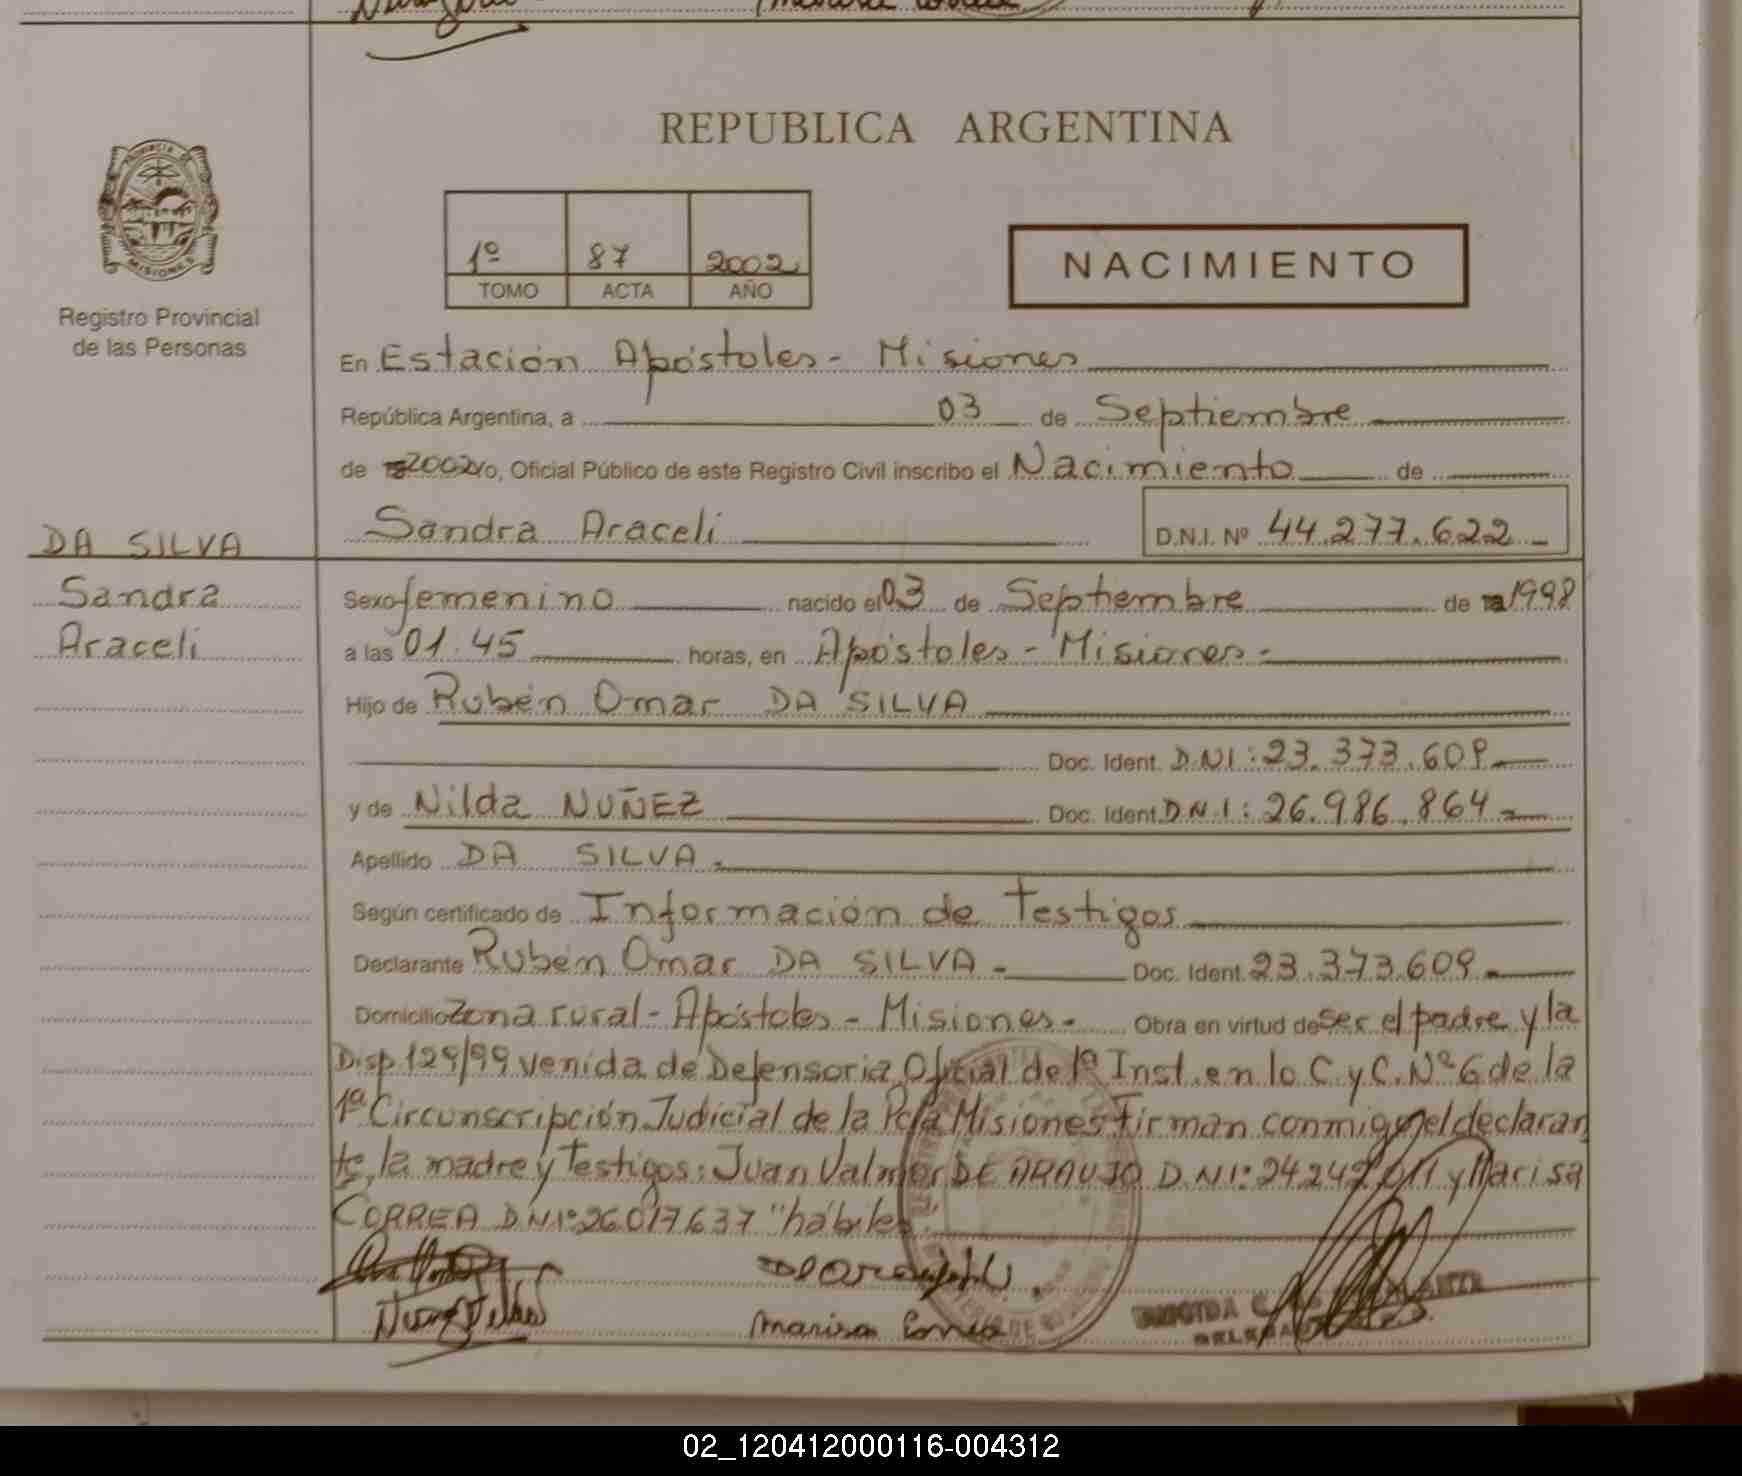 REPUBLICA ARGENTINA
PROVINCIA DE
MISIONES
1º 87 2002
TOMO ACTA AÑO
NACIMIENTO
Registro Provincial
de las Personas
En Estación Apóstoles - Misiones
República Argentina, a 03 de Septiembre
de 2002 yo, Oficial Público de este Registro Civil inscribo el Nacimiento de
Sandra Araceli D.N.I. Nº 44.277.622
DA SILVA
Sandra
Araceli
Sexo femenino nacido el 03 de Septiembre de 1998
a las 01.45 horas, en Apóstoles - Misiones -
Hijo de Rubén Omar DA SILVA
Doc. Ident. D.N.I: 23.373.609
y de Nilda NUÑEZ Doc. Ident. D.N.I: 26.986.864
Apellido DA SILVA
Según certificado de Información de Testigos
Declarante Rubén Omar DA SILVA - Doc. Ident. 23.373.609
Domicilio Zona rural - Apóstoles - Misiones - Obra en virtud de ser el padre y la
Disp. 129/99 venida de Defensoria Oficial de 1ª Inst. en lo C y C. Nº 6 de la
1ª Circunscripción Judicial de la Pcia Misiones Firman conmigo el declaran
te, la madre y Testigos: Juan Valmor DE ARAUJO D.N.I: 24.242.011 y Marisa
CORREA D.N.I: 26.017.637 "hábiles"
Marisa Correa
02_120412000116-004312